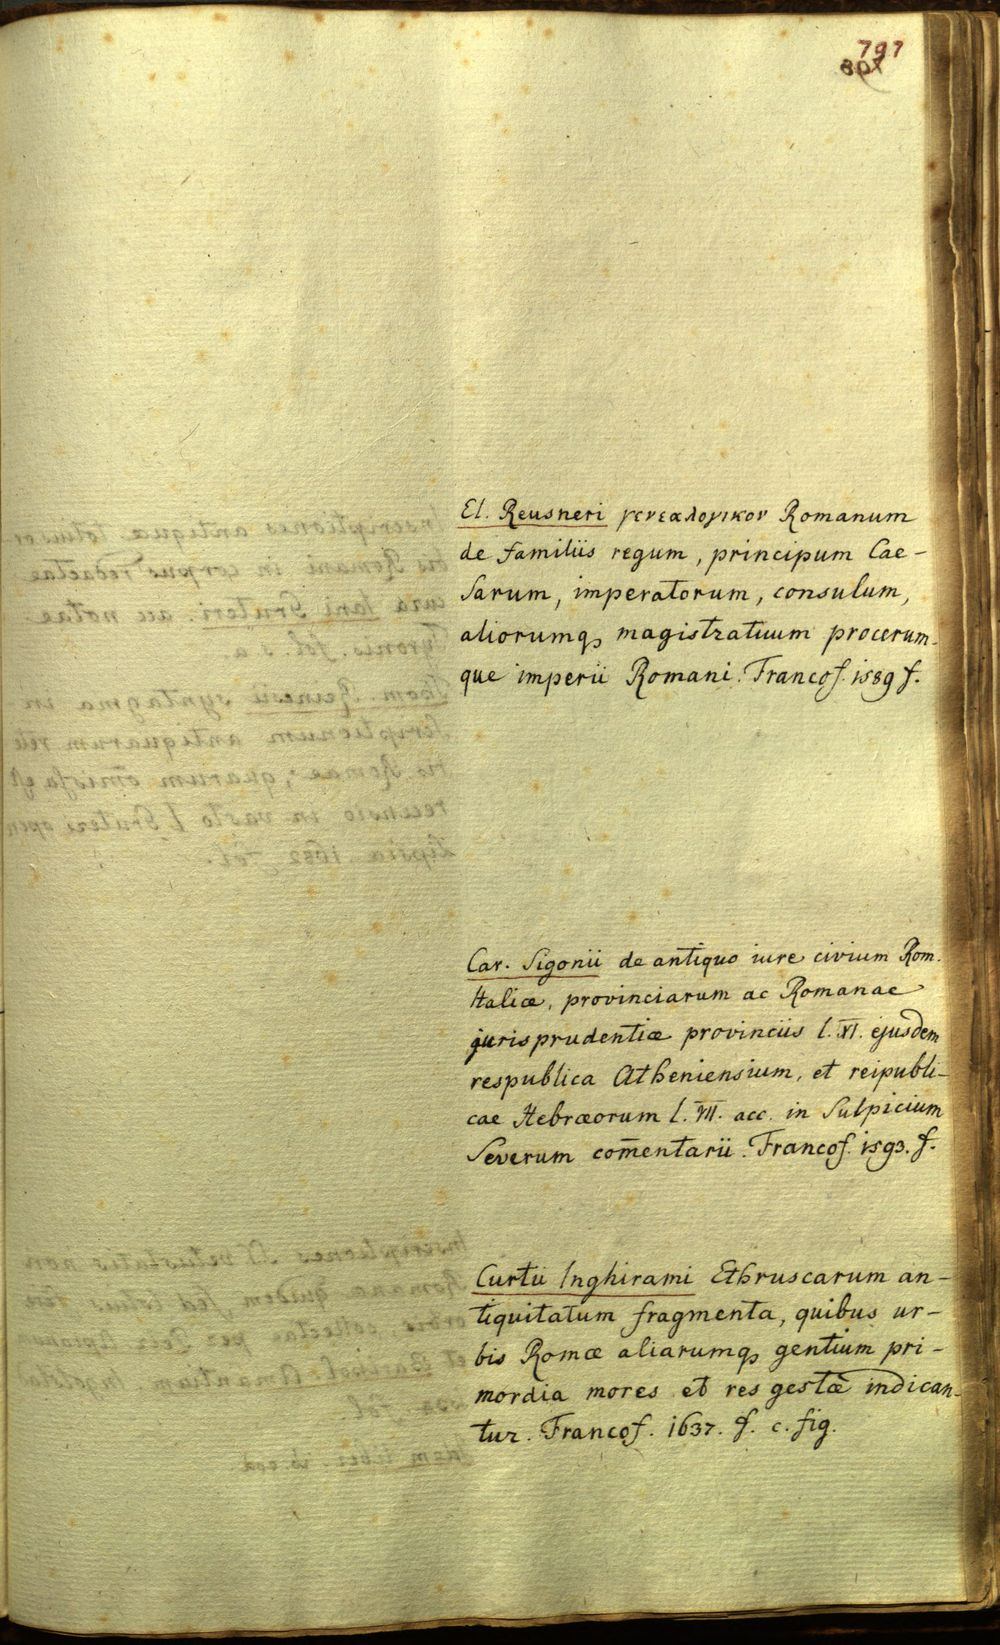 797
801
El. Reusneri γενεαλογικον Romanum
de familiis regum, principum Cae-
sarum, imperatorum, consulum,
aliorumq, magistratuum procerum-
que imperii Romani. Francof. 1589 f.
Car. Sigonii de antiquo iure civium Rom.
Italiæ, provinciarum ac Romanae
jurisprudentiæ provinciis l. XI. ejusdem
respublica Atheniensium, et reipubli-
cae Hebræorum l. VII. acc. in Sulpicium
Severum com̄entarii. Francof. 1593. f.
Curtii Inghirami Ethruscarum an-
tiquitatum fragmenta, quibus ur-
bis Romæ aliarumq, gentium pri-
mordia mores et res gestæ indican-
tur. Francof. 1637. f. c. fig.